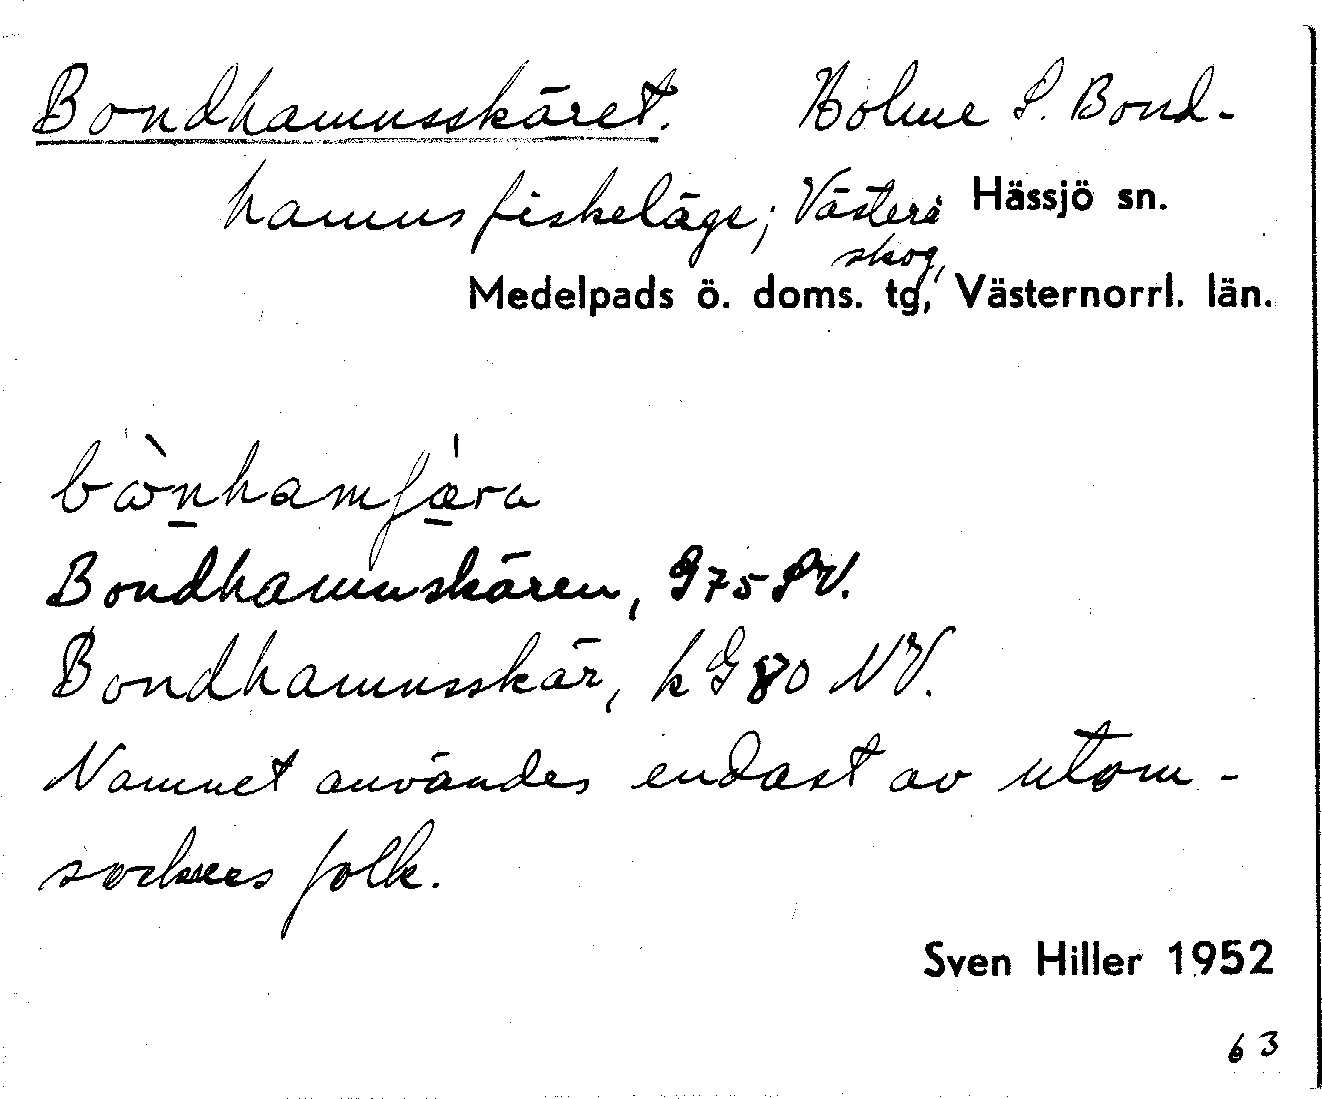 Bondhamnsskäret. Holme S. Bond-
hamns fiskeläge; Västerå Hässjö sn.
skog,
Medelpads ö. doms. tg, Västernorrl. län.
Bondhamnskären, G75 SV.
Bondhamnsskär, k G 80 NV.
Namnet användes endast av utom-
sockens folk.
Sven Hiller 1952
63